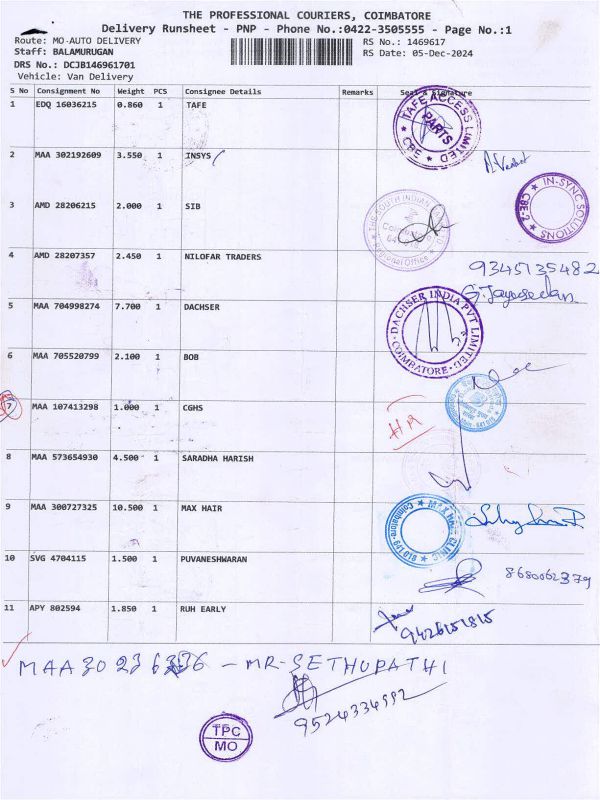 THE PROFESSIONAL COURIERS, COIMBATORE
Delivery Runsheet - PNP - Phone No.:0422-3505555 - Page No.:1
Route: MO-AUTO DELIVERY RS No.: 1469617
Staff: BALAMURUGAN RS Date: 05-Dec-2024
DRS No.: DCJB146961701
Vehicle: Van Delivery
S No Consignment No Weight PCS Consignee Details Remarks Seal & Signature
1 EDQ 16036215 0.860 1 TAFE
TAFE ACCESS LIMITED
PARTS
CBE
2 MAA 302192609 3.550 1 INSYS
IN-SYNC SOLUTIONS
CBE-2
3 AMD 28206215 2.000 1 SIB
THE SOUTH INDIAN
Regional Office
4 AMD 28207357 2.450 1 NILOFAR TRADERS
9345135482
5 MAA 704998274 7.700 1 DACHSER
DACHSER INDIA PVT LIMITED
COIMBATORE
6 MAA 705520799 2.100 1 BOB
7 MAA 107413298 1.000 1 CGHS
8 MAA 573654930 4.500 1 SARADHA HARISH
9 MAA 300727325 10.500 1 MAX HAIR
MAX HAIR CLINIC
10 SVG 4704115 1.500 1 PUVANESHWARAN
8680062379
11 APY 802594 1.850 1 RUH EARLY
9426151815
- MR-SETHUPATHI
9524334992
TPC
MO